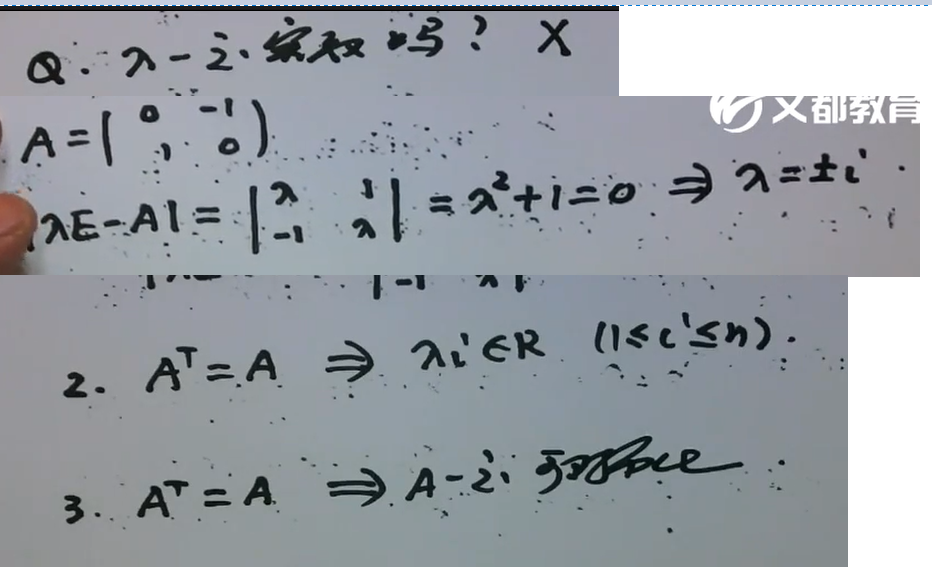 Q. λ-定实数吗? X
文都教育
A = ( 0 -1
1 0 )
|λE-A| = | λ 1
-1 λ | = λ²+1=0 ⇒ λ=±i.
2. Aᵀ=A ⇒ λi∈R (1≤i≤n).
3. Aᵀ=A ⇒ A-定可对角化.